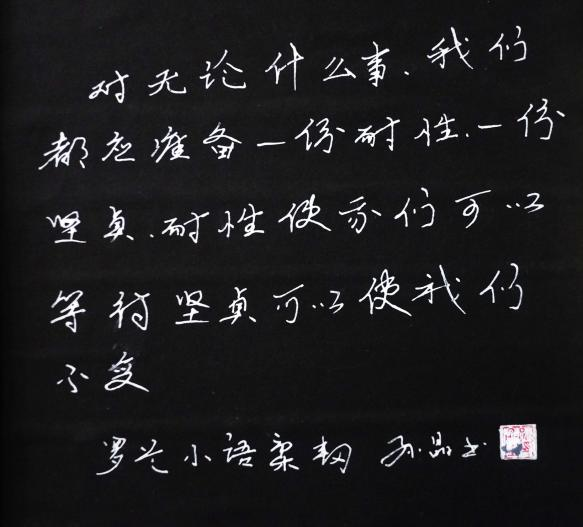 对无论什么事、我们
都应准备一份耐性、一份
坚贞、耐性使我们可以
等待坚贞可以使我们
不变
罗兰小语柔韧 孙晶书